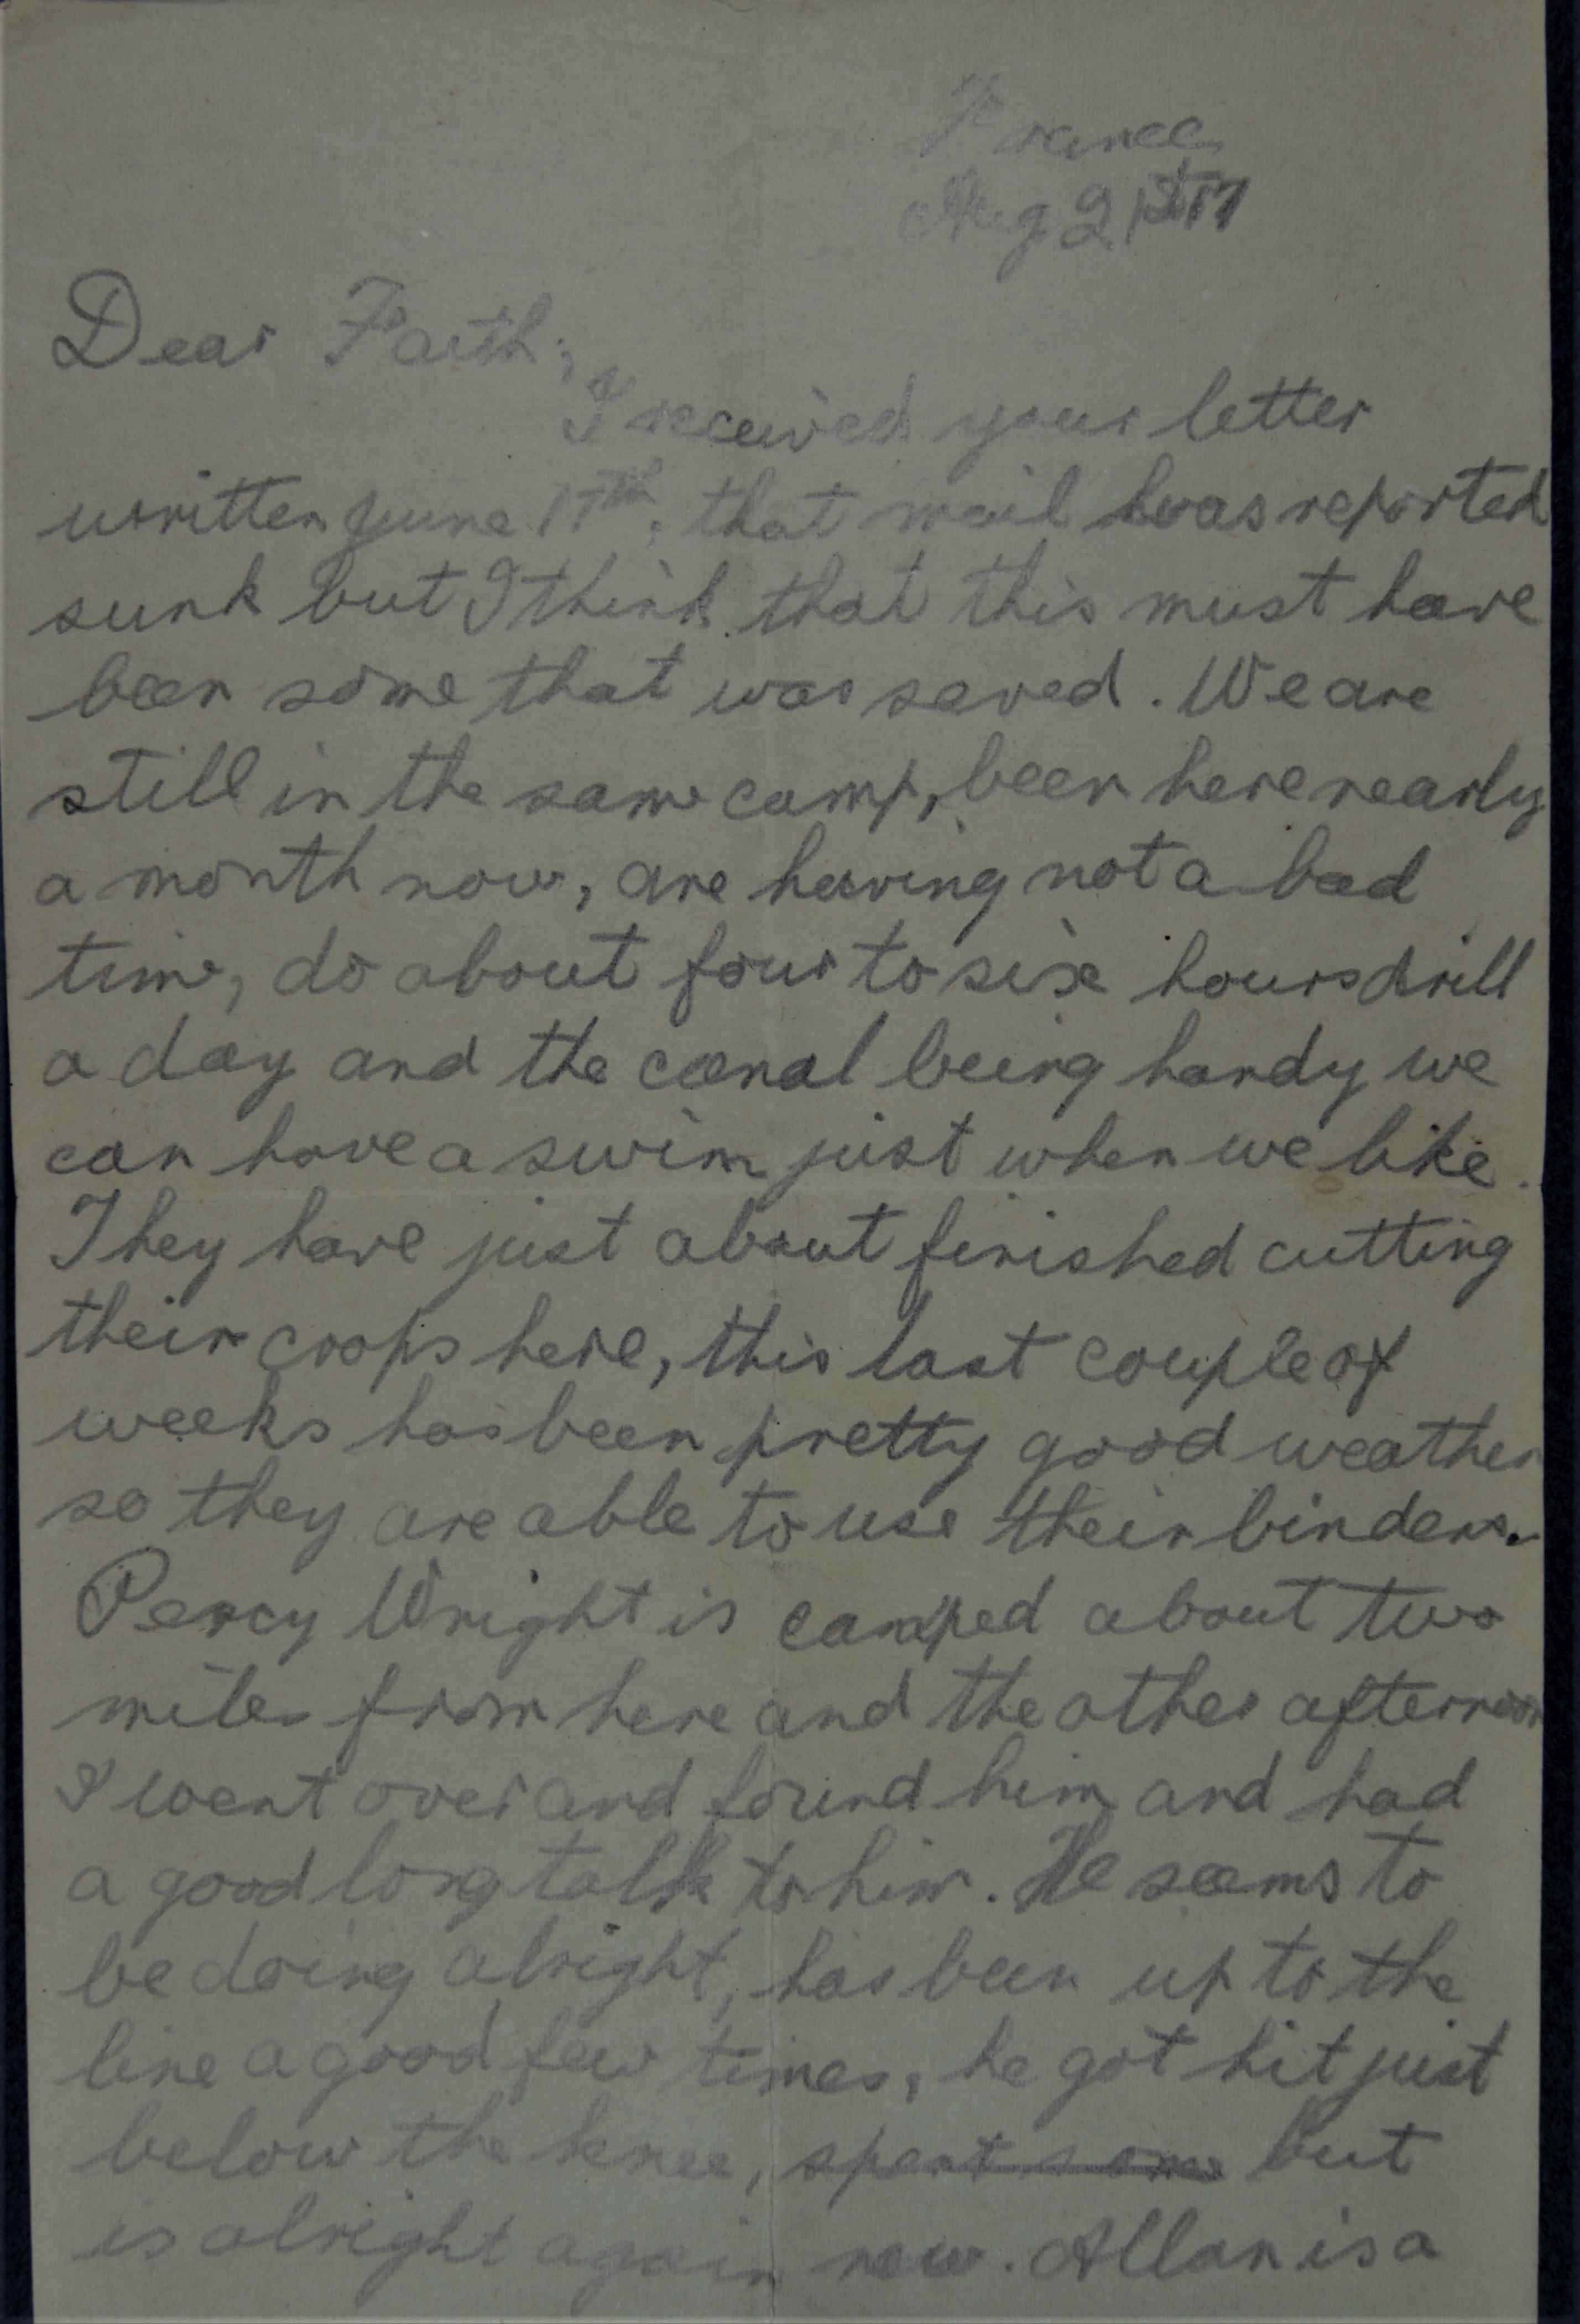 France
Aug 21st 17
Dear Faith,
I received your letter
written June 17th, that mail was reported
sunk but I think that this must have
been some that was saved. We are
still in the same camp, been here nearly
a month now, are having not a bad
time, do about four to six hours drill
a day and the canal being handy we
can have a swim just when we like.
They have just about finished cutting
their crops here, this last couple of
weeks has been pretty good weather
so they are able to use their binders.
Percy Wright is camped about two
miles from here and the other afternoon
I went over and found him and had
a good long talk to him. He seems to
be doing alright, has been up to the
line a good few times, he got hit just
below the knee, spent some but
is alright again now. Allan is a